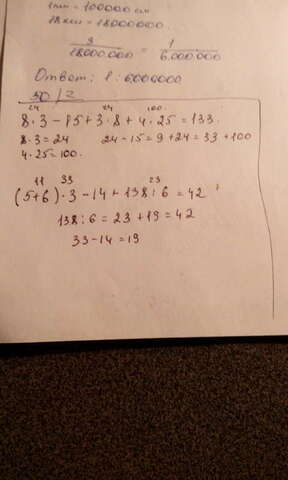 1 км = 100000 см
18 км = 18000000.
3/18000.000 = 1/6.000.000
Ответ: 1 : 6000000
24 24 100.
8·3-15+3·8+4·25=133.
8·3=24 24-15=9+24=33+100
4·25=100.
11 33 23
(5+6)·3-14+138:6=42
138:6=23+19=42
33-14=19